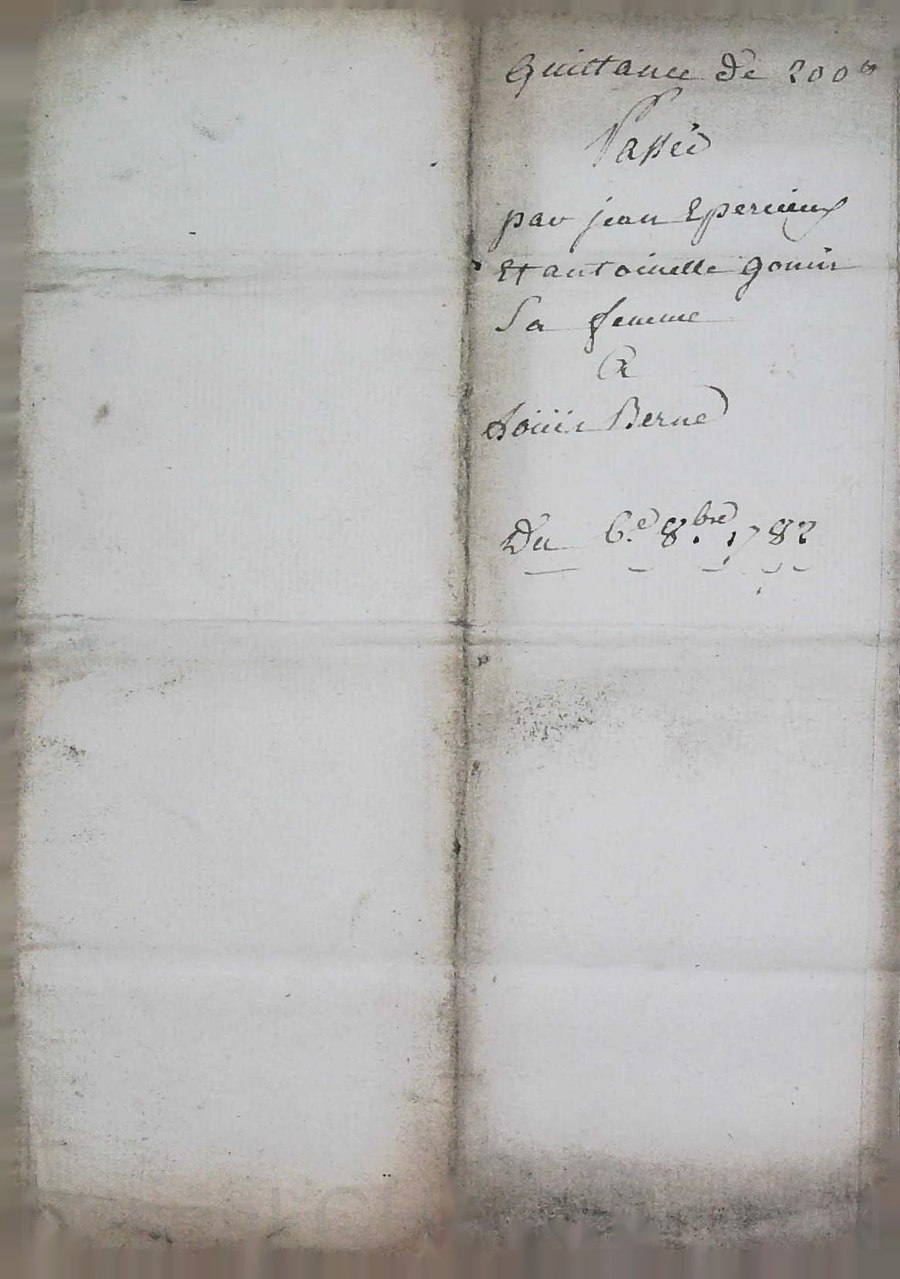 Quittance de 200 ₶
Passée
par jean Epercieux
Et antoinette gonin
Sa femme
A
Loüis Berne
Du 6.e 8.bre 1782